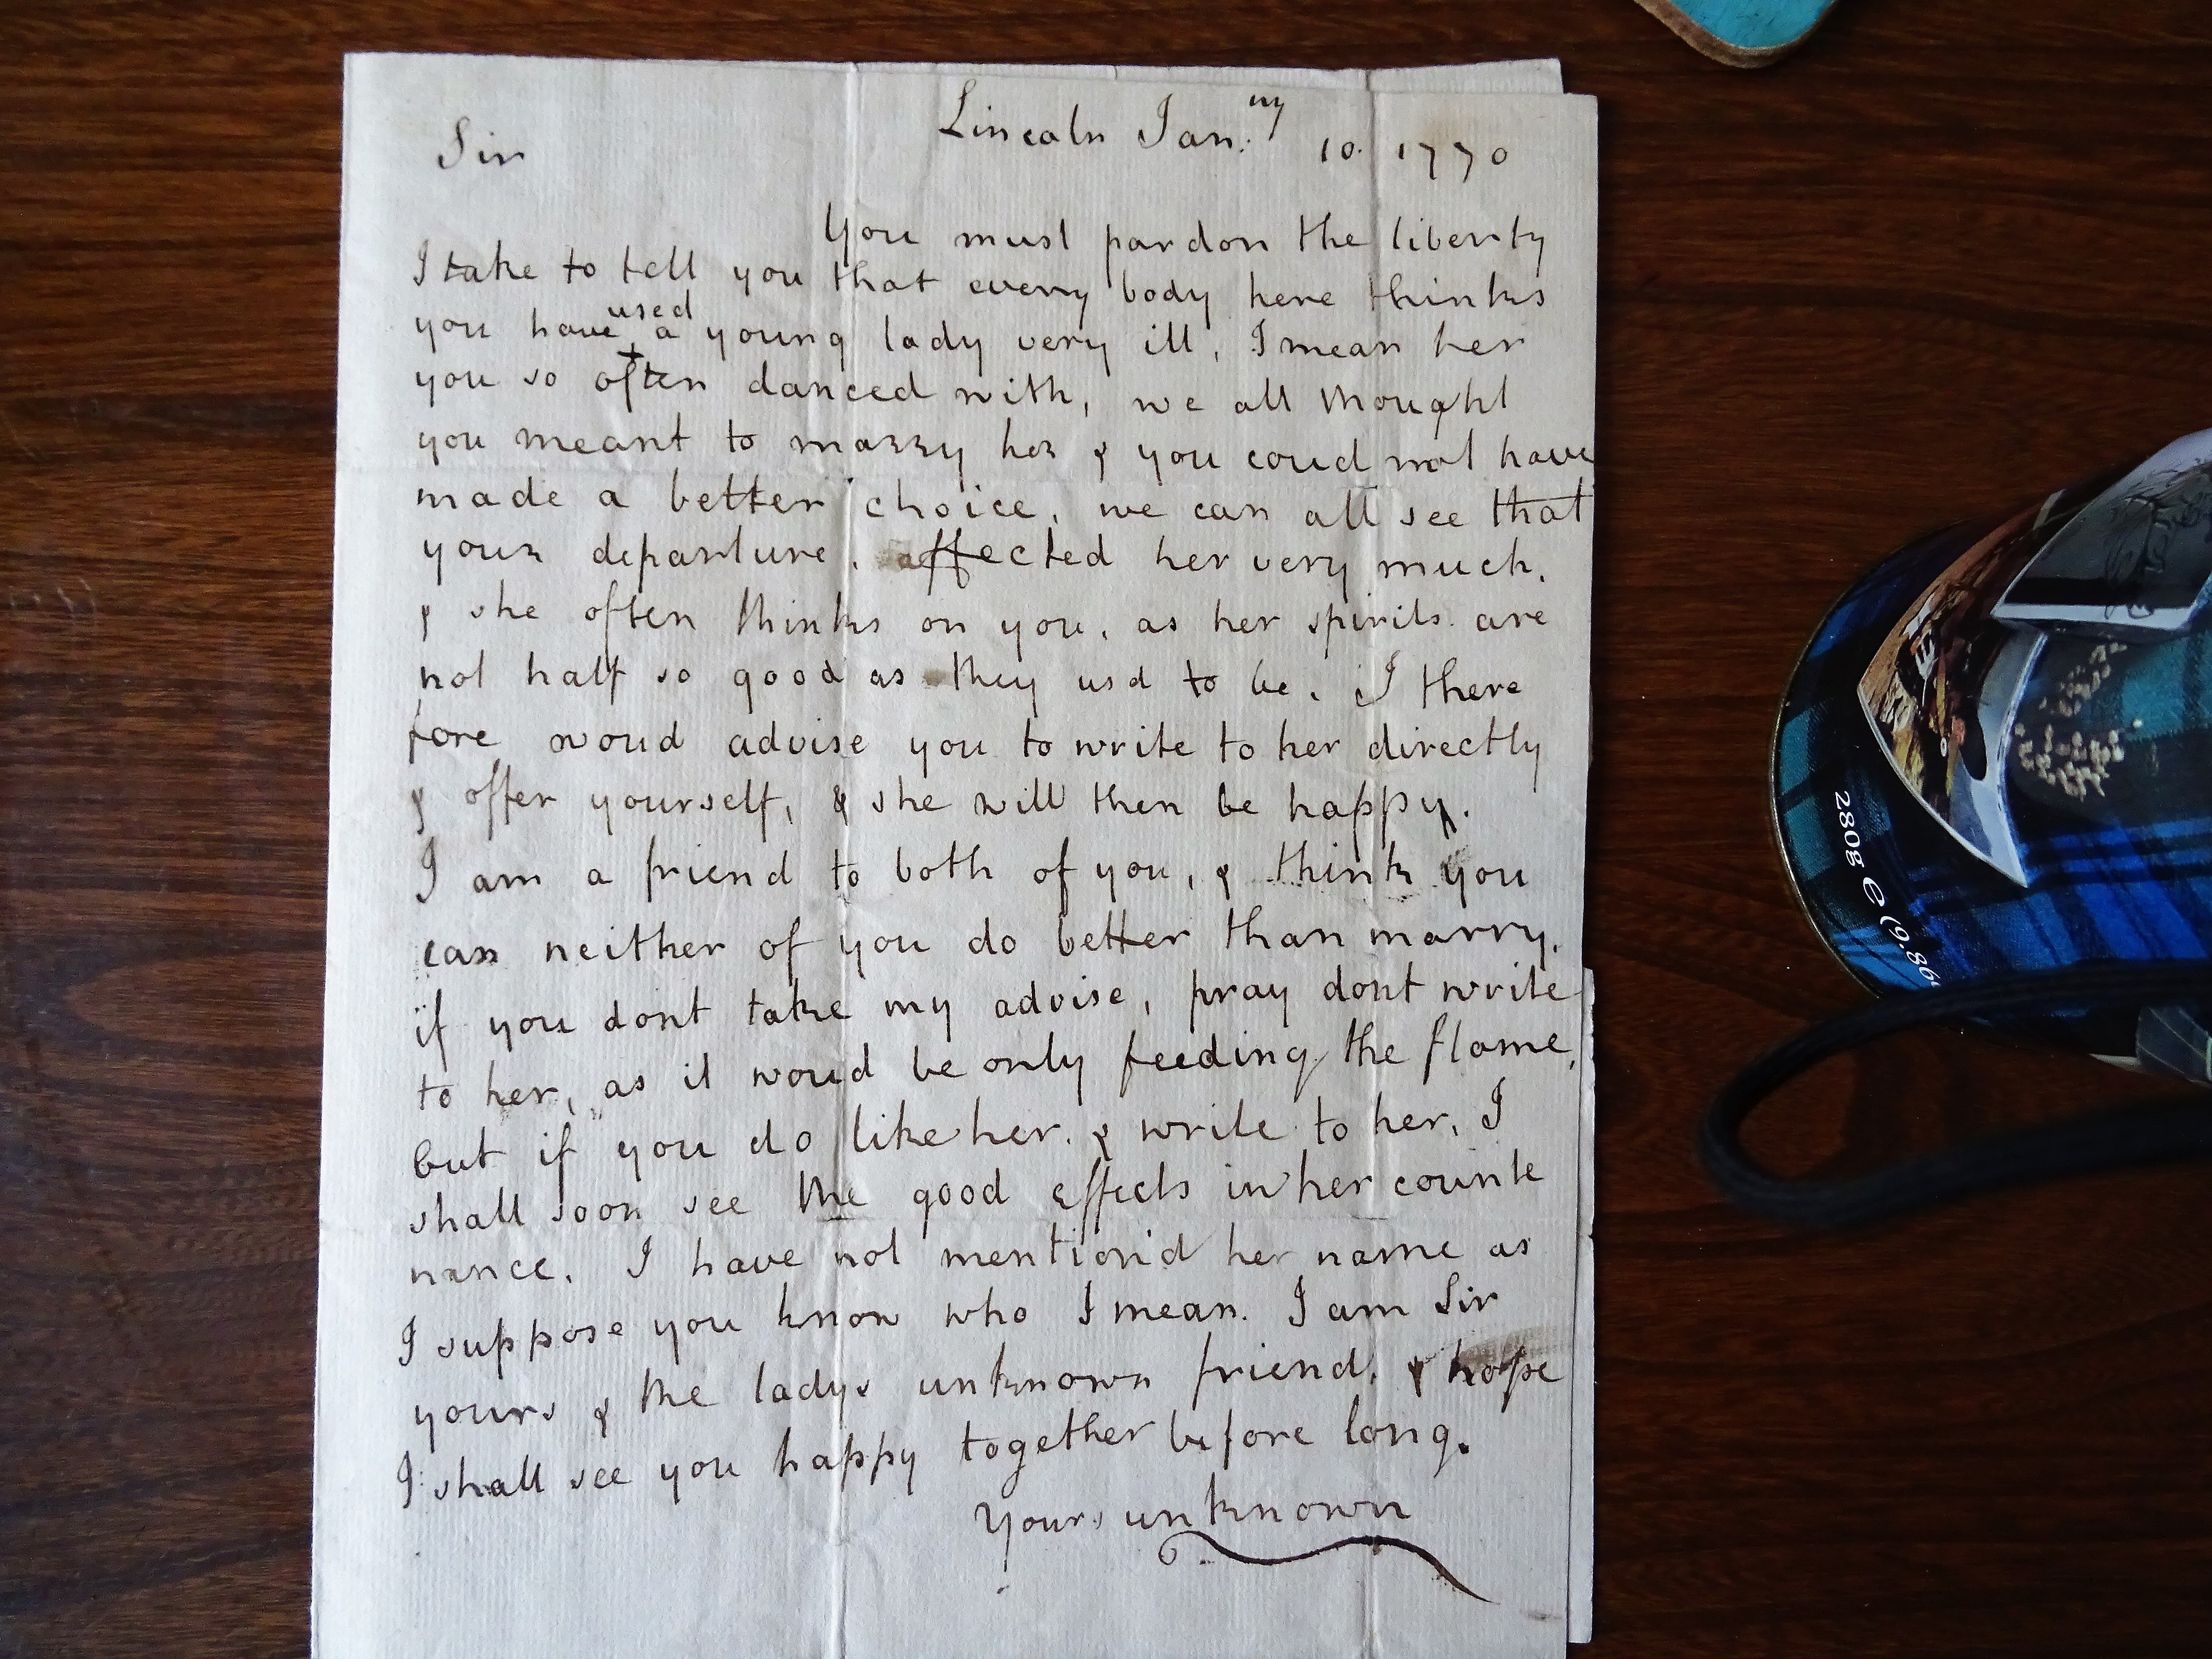 Lincoln Jan:ry 10. 1770
Sir
You must pardon the liberty
I take to tell you that every body here thinks
you have used a young lady very ill, I mean her
you so often danced with, we all thought
you meant to marry her & you coud not have
made a better choice, we can all see that
your departure, affected her very much,
& she often thinks on you, as her spirits are
not half so good as they usd to be. I there
fore woud advise you to write to her directly
& offer yourself, & she will then be happy.
I am a friend to both of you, & think you
can neither of you do better than marry.
if you dont take my advise, pray dont write
to her, as it woud be only feeding the flame,
but if you do like her. & write to her, I
shall soon see the good effects in her counte
nance. I have not mention'd her name as
I suppose you know who I mean. I am Sir
yours & the ladys unknown friend, & hope
I shall see you happy together before long.
Yours unknown
280g e (9.86